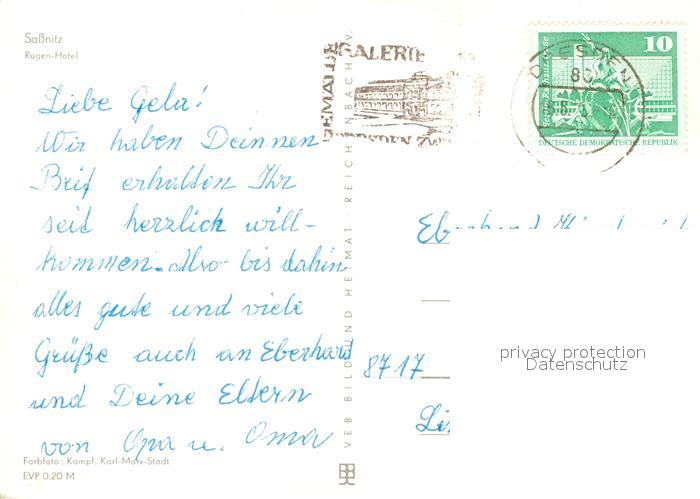 Saßnitz
Rügen-Hotel
Liebe Gela!
Wir haben Deinnen
Brif erhalten Ihr
seid herzlich will-
kommen. Also bis dahin
alles gute und viele
Grüße auch an Eberhard
und Deine Eltern
von Opa u. Oma
Farbfoto: Kampf, Karl-Marx-Stadt
EVP 0,20 M
VEB BILD UND HEIMAT REICHENBACH I. V.
GEMÄLDEGALERIE
DRESDEN
DRESDEN
80
10
DEUTSCHE DEMOKRATISCHE REPUBLIK
Eberhard
8717
privacy protection
Datenschutz